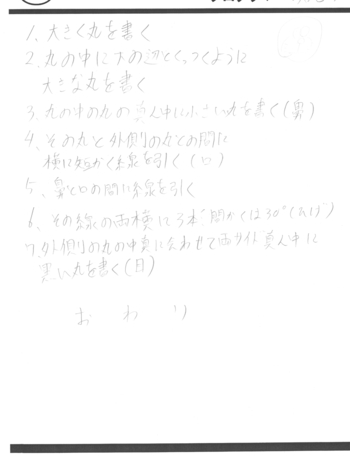 1、大きく丸を書く
2、丸の中に下の辺とくっつくように
大きな丸を書く
3、丸の中の丸の真ん中に小さい丸を書く(鼻)
4、その丸と外側の丸との間に
横に短かく線を引く(口)
5、鼻と口の間に線を引く
6、その線の両横に3本、間かくは30°(ひげ)
7、外側の丸の中真に合わせて両サイド真ん中に
黒い丸を書く(目)
おわり